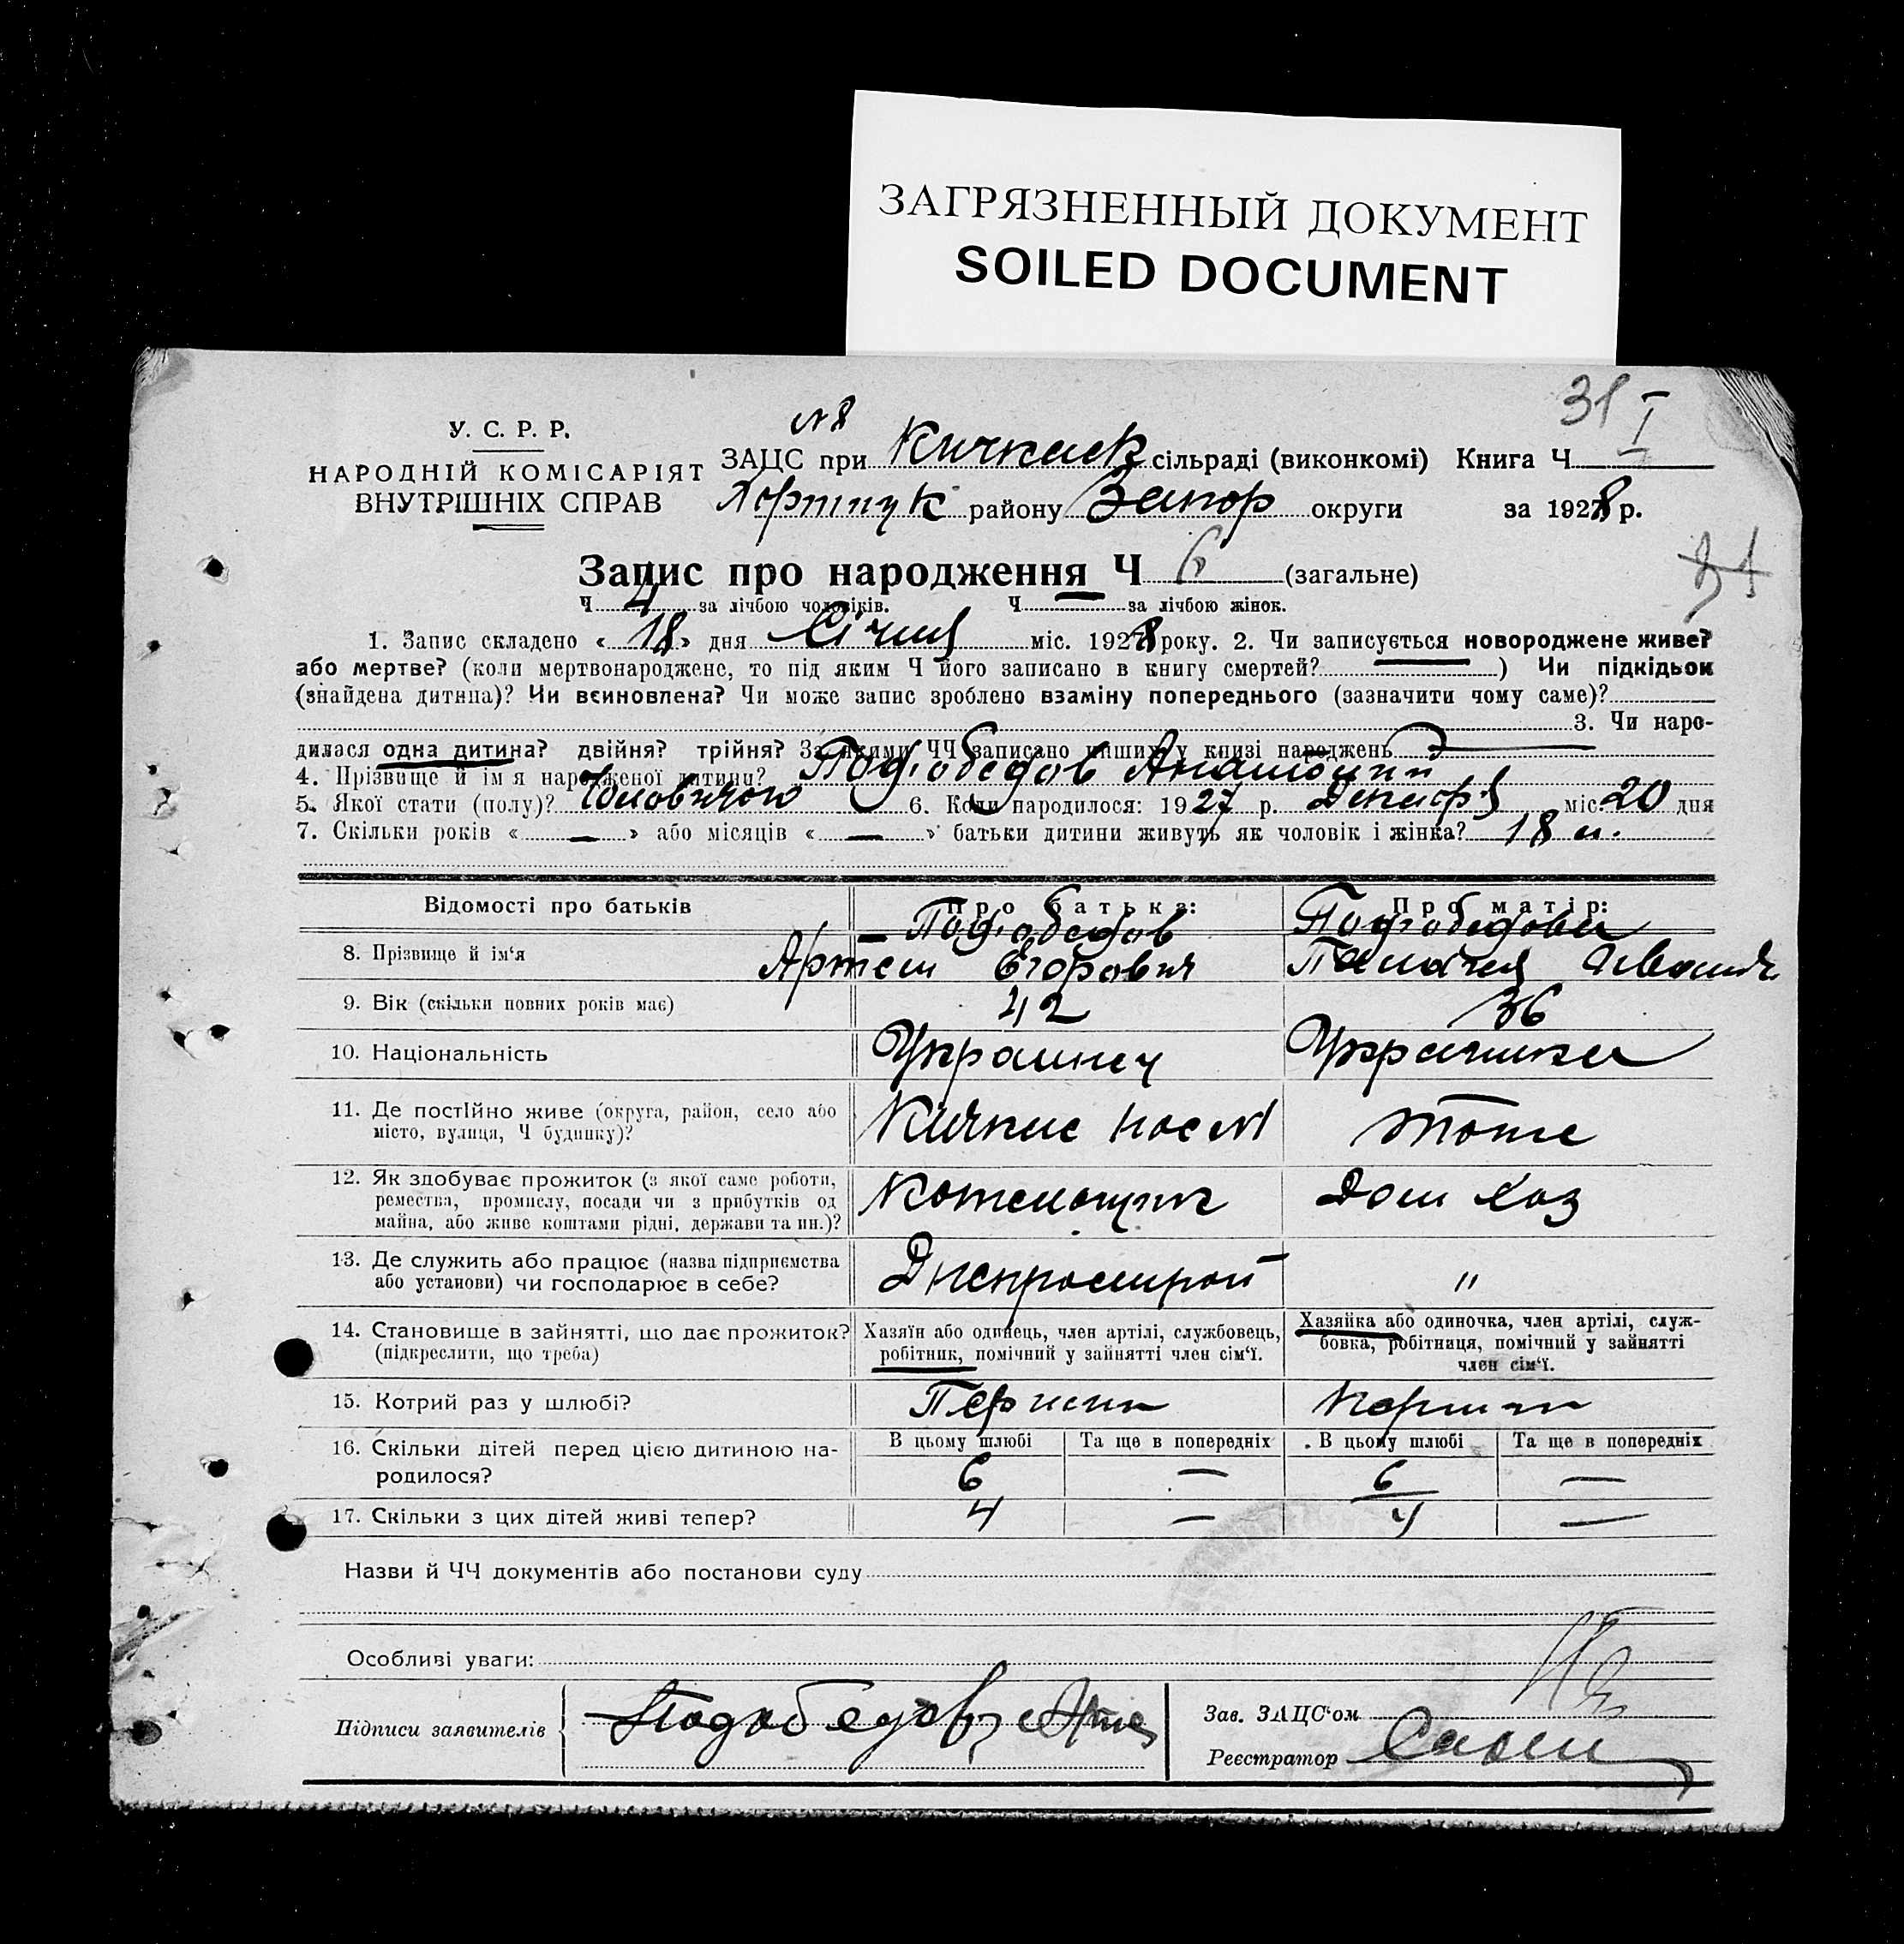 ЗАГРЯЗНЕННЫЙ ДОКУМЕНТ
SOILED DOCUMENT
31 I
У. С. Р. Р.
НАРОДНІЙ КОМІСАРІЯТ
ВНУТРІШНІХ СПРАВ
N 8
ЗАЦС при Кичкаск сільраді (виконкомі) Книга Ч
Хортицк району Запор округи за 1928 р.
31
Запис про народження Ч 6 (загальне)
Ч 4 за лічбою чоловіків. Ч — за лічбою жінок.
1. Запис складено « 18 » дня Січня міс. 1928 року. 2. Чи записується новороджене живе?
або мертве? (коли мертвонароджене, то під яким Ч його записано в книгу смертей? — ) Чи підкідьок
(знайдена дитина)? Чи всиновлена? Чи може запис зроблено взаміну попереднього (зазначити чому саме)?
3. Чи наро-
дилася одна дитина? двійня? трійня? За якими ЧЧ записано инших у книзі народжень —
4. Прізвище й ім'я народженої дитини? Подобедов Анатолий
5. Якої стати (полу)? Чоловичою 6. Коли народилося: 1927 р. Декабря міс. 20 дня
7. Скільки років « — » або місяців « — » батьки дитини живуть як чоловік і жінка? 18 л.
Відомості про батьків
Про батька:
Про матір:
8. Прізвище й ім'я
Подобедов
Артем Егорович
Подобедова
Палагея Иванов
9. Вік (скільки повних років має)
42
36
10. Національність
Украинец
Украинка
11. Де постійно живе (округа, район, село або
місто, вулиця, Ч будинку)?
Кичкас
тоже
12. Як здобуває прожиток (з якої саме роботи,
ремества, промислу, посади чи з прибутків од
майна, або живе коштами рідні, держави та ин.)?
Дом хоз
13. Де служить або працює (назва підприємства
або установи) чи господарює в себе?
Днепрострой
"
14. Становище в зайнятті, що дає прожиток?
(підкреслити, що треба)
Хазяїн або одинець, член артілі, службовець,
робітник, помічний у зайнятті член сім'ї.
Хазяйка або одиночка, член артілі, служ-
бовка, робітниця, помічний у зайнятті
член сім'ї.
15. Котрий раз у шлюбі?
16. Скільки дітей перед цією дитиною на-
родилося?
В цьому шлюбі Та ще в попередніх В цьому шлюбі Та ще в попередніх
6 — 6 —
17. Скільки з цих дітей живі тепер?
4 — 4 —
Назви й ЧЧ документів або постанови суду
Особливі уваги:
Підписи заявителів
Подобедов Арте
Зав. ЗАЦС'ом
Реєстратор